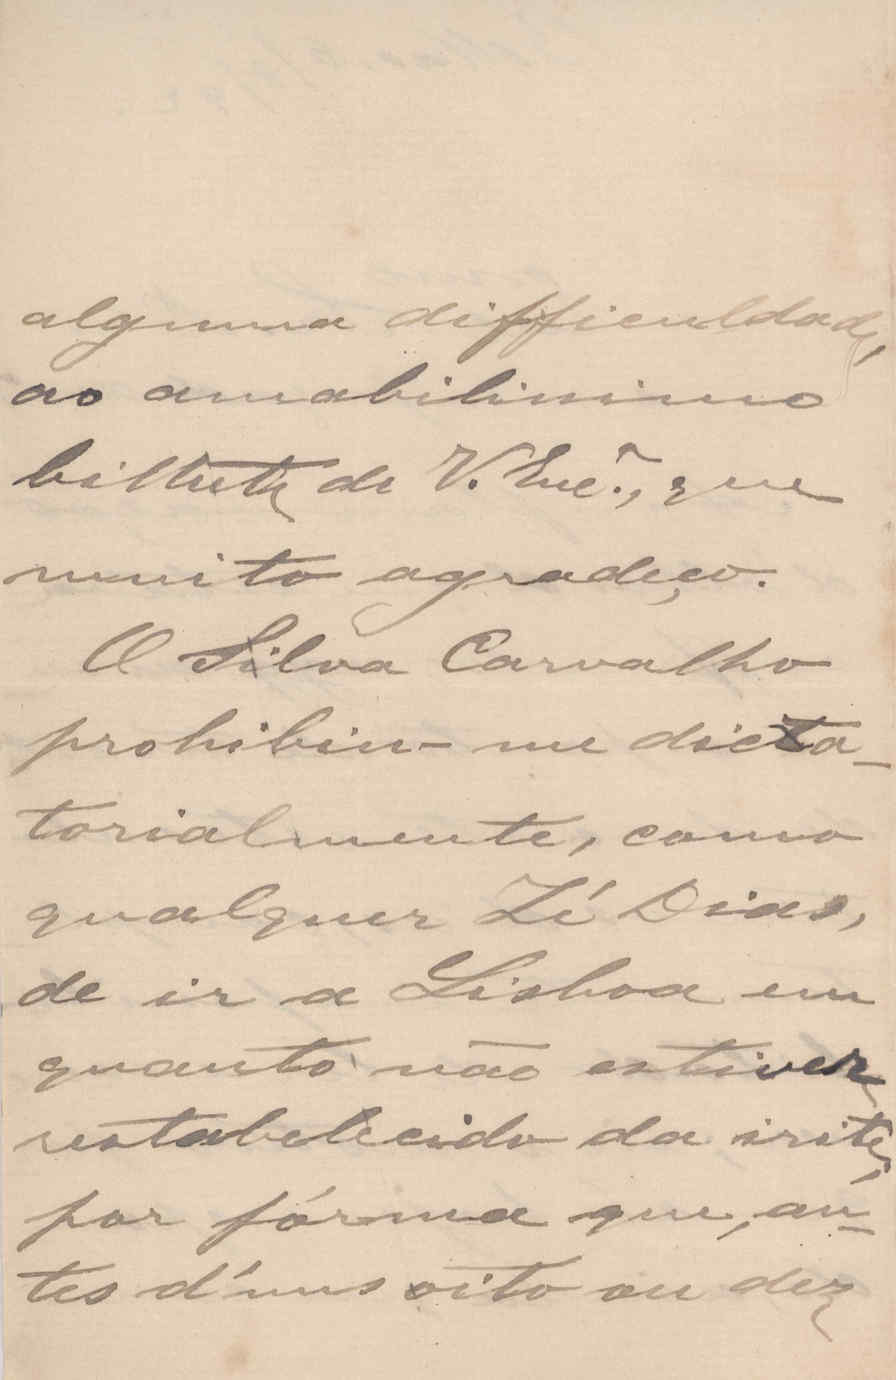 alguma difficuldade,
ao amabilissimo
bilhete de V. Exc.ª, que
muito agradeço.
O Silva Carvalho
prohibiu-me dicta-
torialmente, como
qualquer Zé Dias,
de ir a Lisboa em
quanto não estiver
restabelecido da irite;
por fórma que, an-
tes d'uns oito ou dez